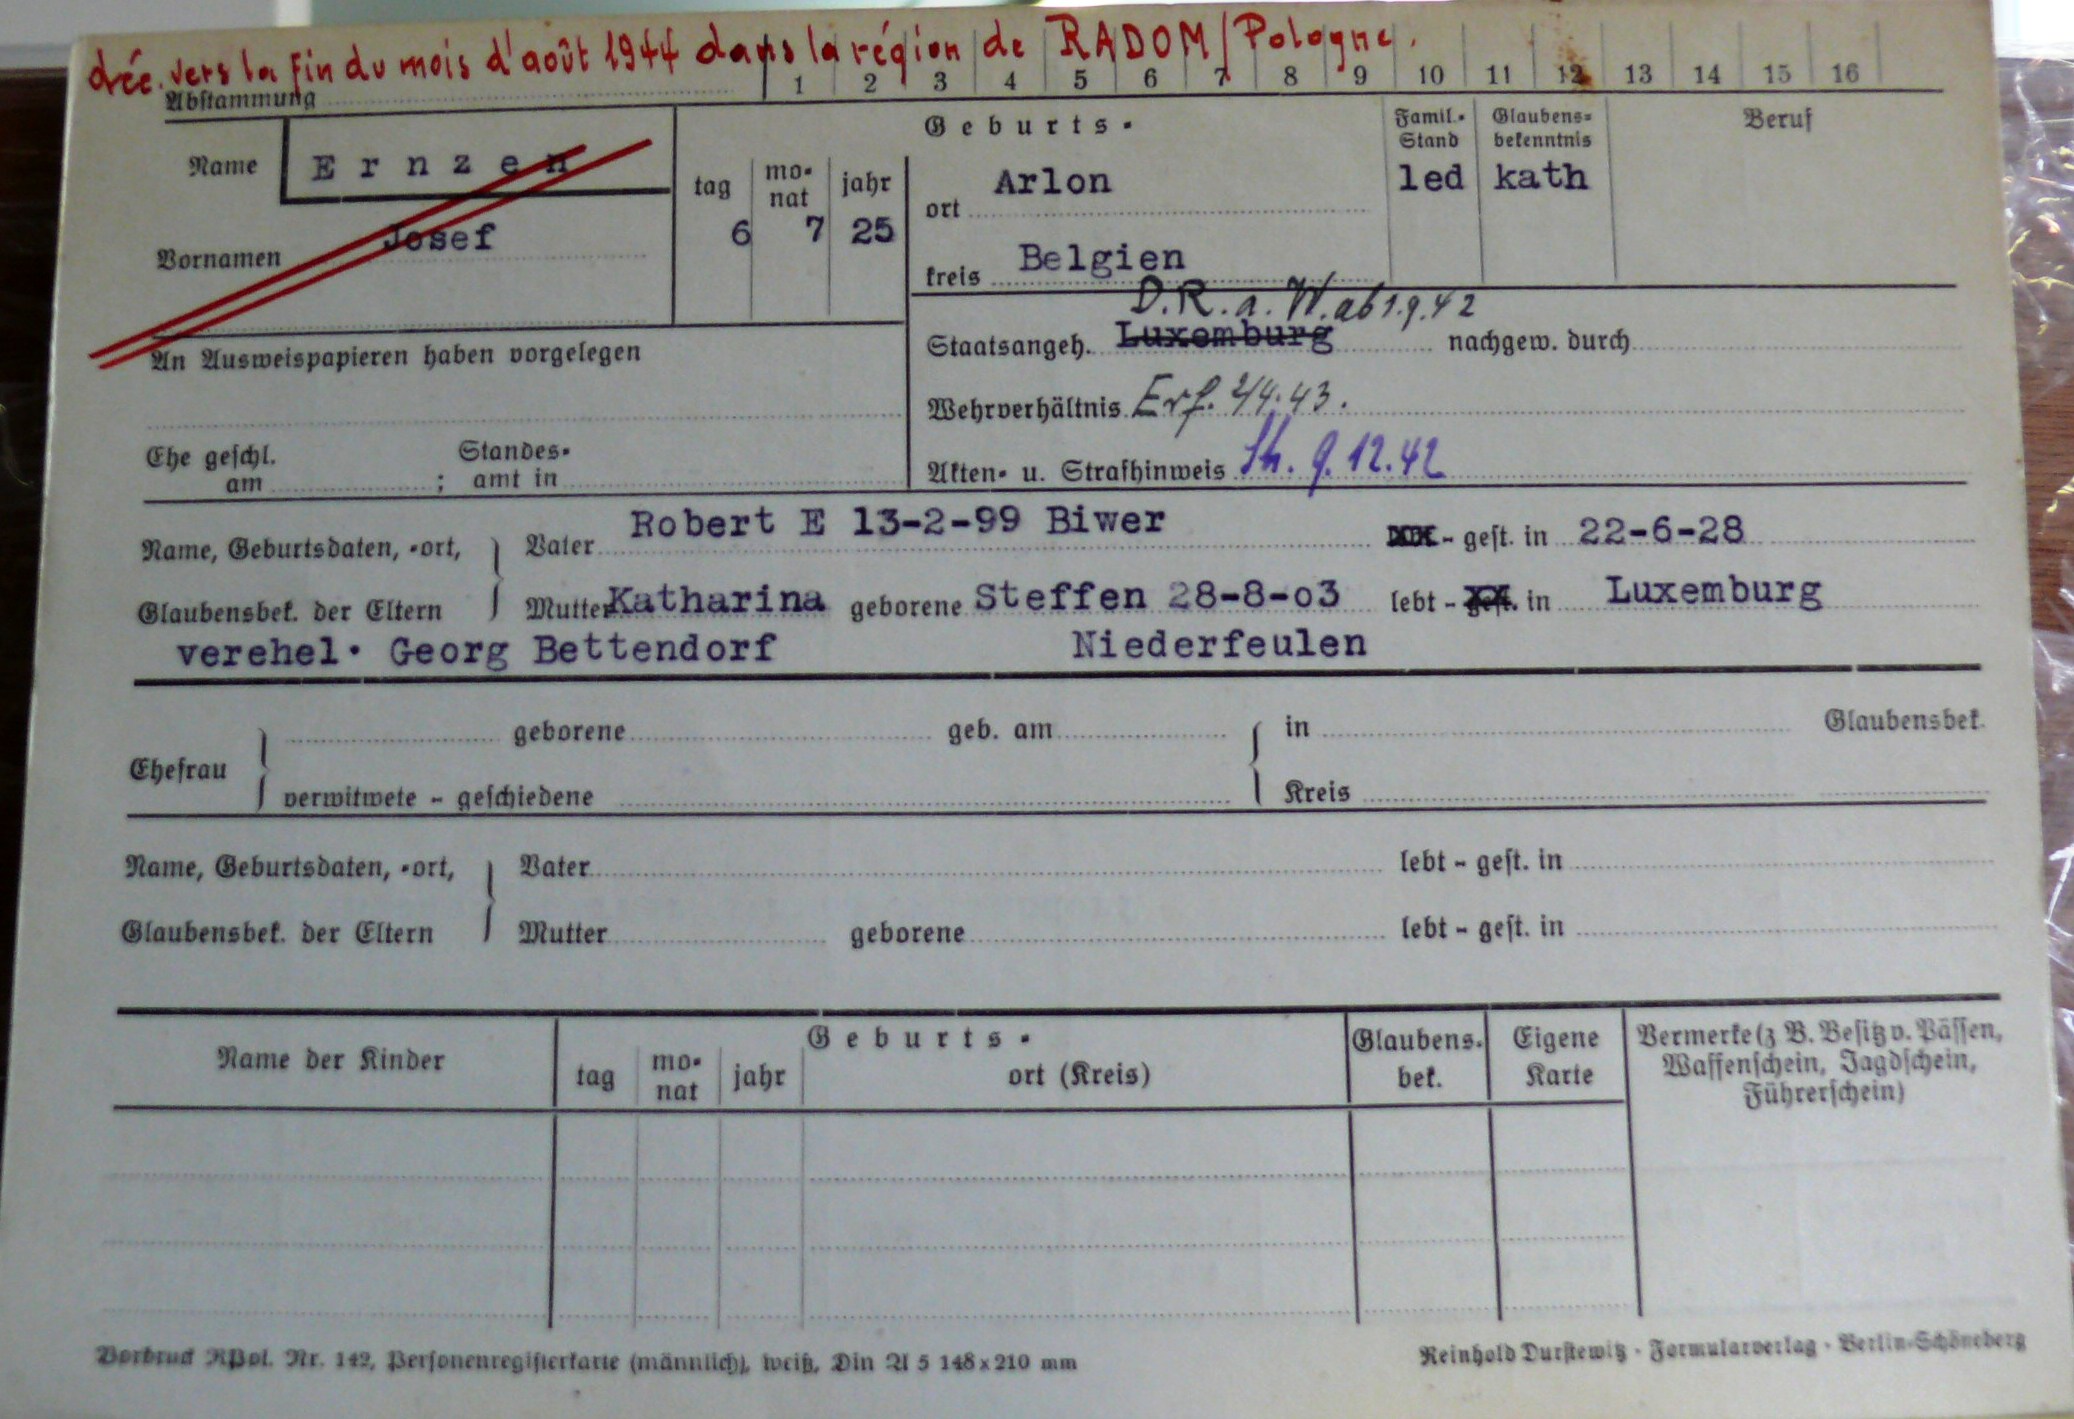 drée. vers la fin du mois d'août 1944 dans la région de RADOM/Pologne.
Abstammung 1 2 3 4 5 6 7 8 9 10 11 12 13 14 15 16
Name Ernzen
Vornamen Josef
Geburts-
tag monat jahr
6 7 25
ort Arlon
kreis Belgien
Famil.-Stand
led
Glaubens-bekenntnis
kath
Beruf
An Ausweispapieren haben vorgelegen
D.R.a.W. ab 1.9.42
Staatsangeh. Luxemburg nachgew. durch
Wehrverhältnis Erf. 2/4.43.
Ehe geschl. am ; Standes-amt in
Akten- u. Strafhinweis 9.12.42
Name, Geburtsdaten, -ort, Vater Robert E 13-2-99 Biwer - gest. in 22-6-28
Glaubensbek. der Eltern Mutter Katharina geborene Steffen 28-8-03 lebt - gest. in Luxemburg
verehel. Georg Bettendorf Niederfeulen
Ehefrau geborene geb. am in Glaubensbek.
verwitwete - geschiedene Kreis
Name, Geburtsdaten, -ort, Vater lebt - gest. in
Glaubensbek. der Eltern Mutter geborene lebt - gest. in
Name der Kinder
Geburts-
tag monat jahr ort (Kreis)
Glaubens-bek.
Eigene Karte
Vermerke (z B. Besitz v. Pässen,
Waffenschein, Jagdschein,
Führerschein)
Vordruck RPol. Nr. 142, Personenregisterkarte (männlich), weiß, Din A 5 148x210 mm
Reinhold Durstewitz · Formularverlag · Berlin-Schöneberg